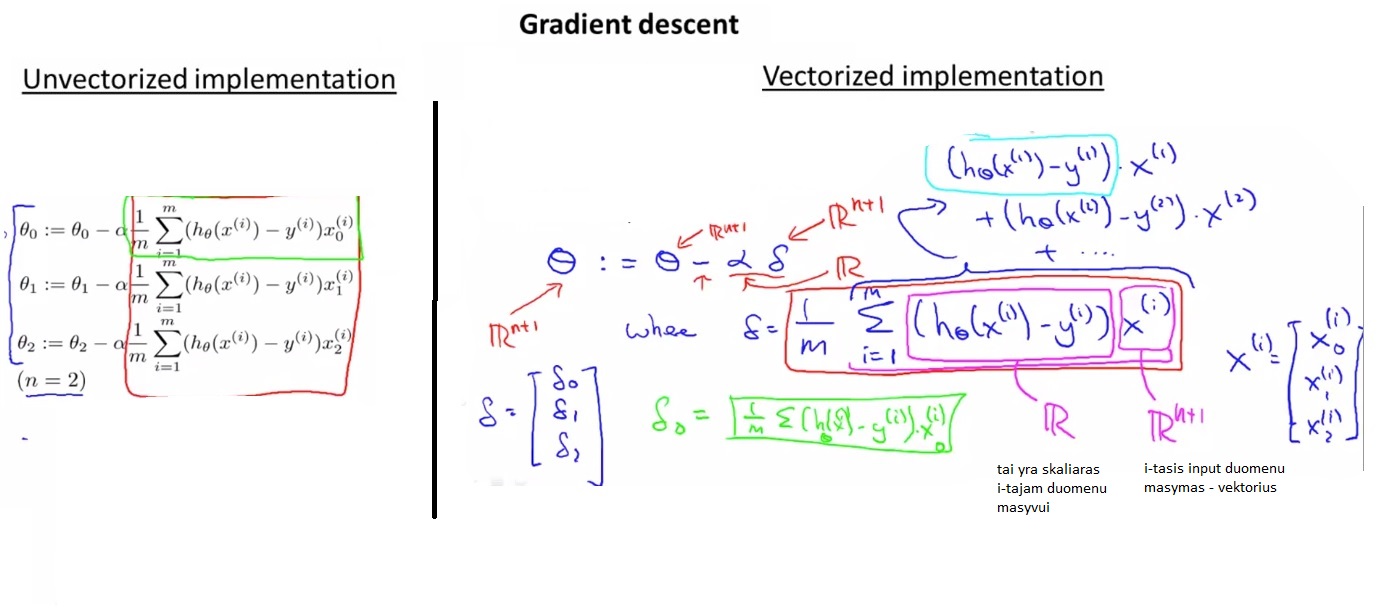 Gradient descent
Unvectorized implementation
θ₀ := θ₀ − α 1/m ∑_{i=1}^{m} (h_θ(x^{(i)}) − y^{(i)})x₀^{(i)}
θ₁ := θ₁ − α 1/m ∑_{i=1}^{m} (h_θ(x^{(i)}) − y^{(i)})x₁^{(i)}
θ₂ := θ₂ − α 1/m ∑_{i=1}^{m} (h_θ(x^{(i)}) − y^{(i)})x₂^{(i)}
(n = 2)
Vectorized implementation
(h_θ(x^{(1)}) − y^{(1)}) · x^{(1)}
+ (h_θ(x^{(2)}) − y^{(2)}) · x^{(2)}
+ ....
ℝ^{n+1}
ℝ^{n+1}
θ := θ − α δ
ℝ
ℝ^{n+1}
whee δ = 1/m ∑_{i=1}^{m} (h_θ(x^{(i)}) − y^{(i)}) x^{(i)}
x^{(i)} = [x₀^{(i)} x₁^{(i)} x₂^{(i)}]
δ = [δ₀ δ₁ δ₂]
δ₀ = 1/m Σ (h_θ(x^{(i)}) − y^{(i)}) · x₀^{(i)}
ℝ
ℝ^{n+1}
tai yra skaliaras
i-tajam duomenu
masyvui
i-tasis input duomenu
masymas - vektorius